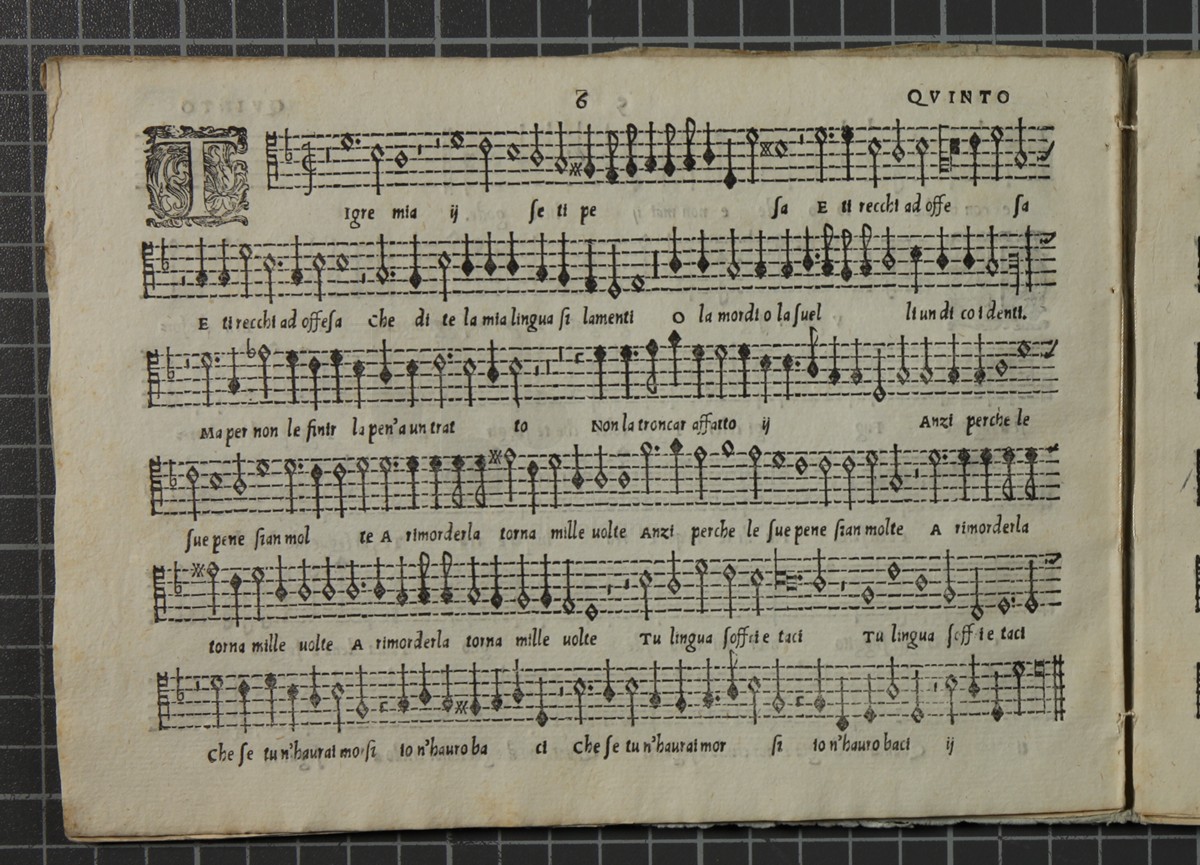 6
QVINTO
TIgre mia ij se ti pe sa E ti recchi ad offe sa
E ti recchi ad offesa Che di te la mia lingua si lamenti O la mordi o la suel li un di co i denti.
Ma per non le finir la pen'a un trat to Non la troncar affatto ij Anzi perche le
sue pene sian mol te A rimorderla torna mille uolte Anzi perche le sue pene sian molte A rimorderla
torna mille uolte A rimorderla torna mille uolte Tu lingua soffri e taci Tu lingua soffri e taci
Che se tu n'haurai morsi io n'hauro ba ci Che se tu n'haurai mor si io n'hauro baci ij